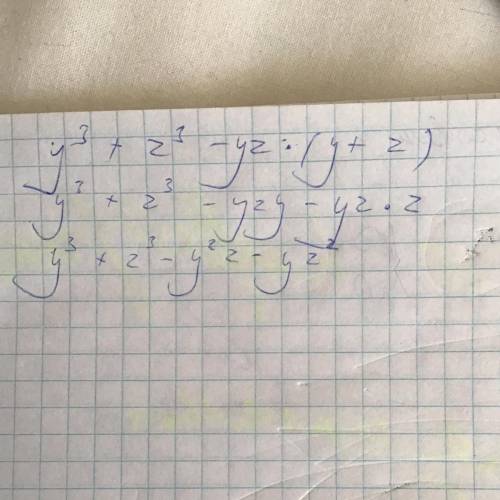 y³ + z³ - yz · (y + z)
y³ + z³ - yzy - yz · z
y³ + z³ - y²z - yz²